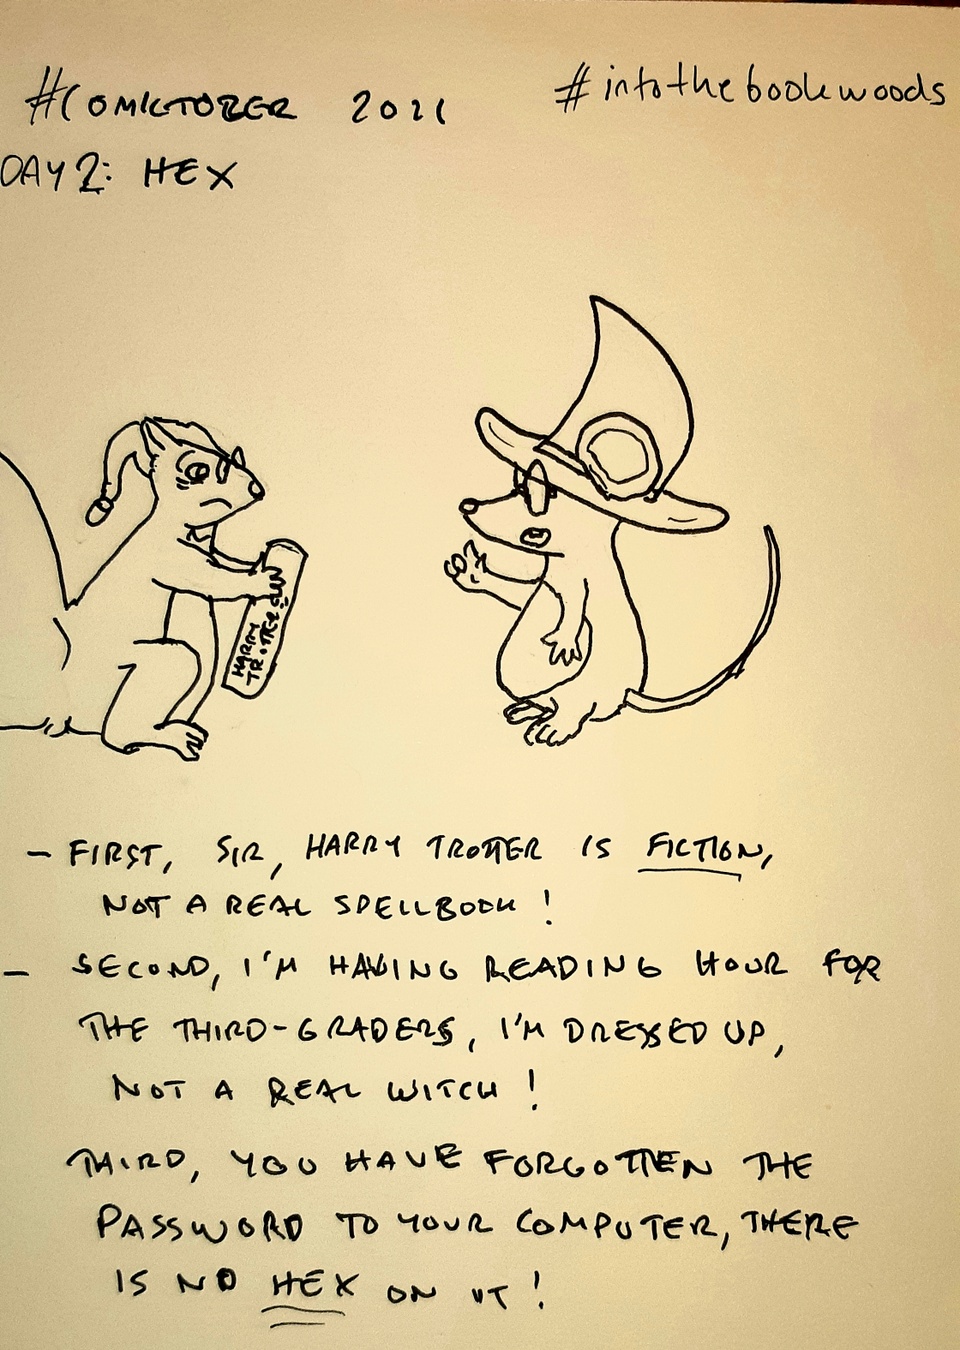 #COMICTOBER 2021
#intothebookwoods
DAY 2: HEX
HARRY
TROTTER
- FIRST, SIR, HARRY TROTTER IS FICTION,
NOT A REAL SPELLBOOK!
- SECOND, I'M HAVING READING HOUR FOR
THE THIRD-GRADERS, I'M DRESSED UP,
NOT A REAL WITCH!
THIRD, YOU HAVE FORGOTTEN THE
PASSWORD TO YOUR COMPUTER, THERE
IS NO HEX ON IT!